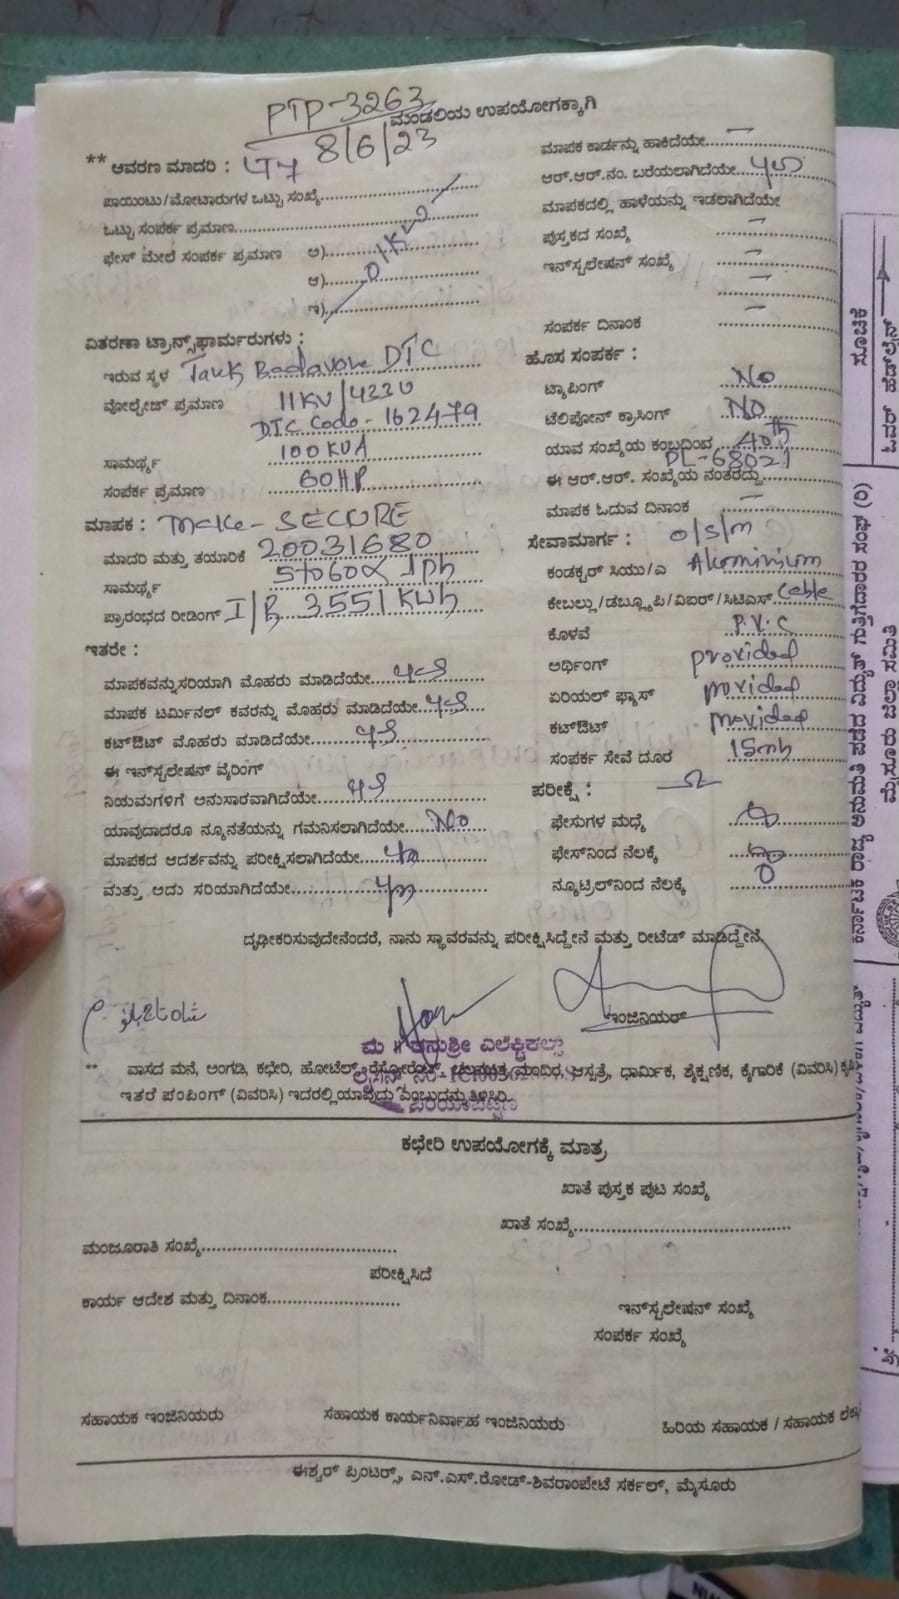 PTP-3263
ಮಂಡಲಿಯ ಉಪಯೋಗಕ್ಕಾಗಿ
8/6/23
** ಆವರಣ ಮಾದರಿ :
ಪಾಯಿಂಟು/ಮೋಟಾರುಗಳ ಒಟ್ಟು ಸಂಖ್ಯೆ
ಒಟ್ಟು ಸಂಪರ್ಕ ಪ್ರಮಾಣ
ಫೇಸ್ ಮೇಲೆ ಸಂಪರ್ಕ ಪ್ರಮಾಣ ಅ)
ಆ)
ಇ)
ವಿತರಣಾ ಟ್ರಾನ್ಸ್‌ಫಾರ್ಮರುಗಳು :
ಇರುವ ಸ್ಥಳ Tank DTC
ವೋಲ್ಟೇಜ್ ಪ್ರಮಾಣ 11KV/433V
DTC Code - 162479
ಸಾಮರ್ಥ್ಯ 100KVA
ಸಂಪರ್ಕ ಪ್ರಮಾಣ 60HP
ಮಾಪಕ : Make - SECURE
ಮಾದರಿ ಮತ್ತು ತಯಾರಿಕೆ 20031680
ಸಾಮರ್ಥ್ಯ 5to60A 1ph
ಪ್ರಾರಂಭದ ರೀಡಿಂಗ್ I/R 3551 KWh
ಇತರೇ :
ಮಾಪಕವನ್ನು ಸರಿಯಾಗಿ ಮೊಹರು ಮಾಡಿದೆಯೇ ಳಿ
ಮಾಪಕ ಟರ್ಮಿನಲ್ ಕವರನ್ನು ಮೊಹರು ಮಾಡಿದೆಯೇ
ಕಟ್‌ಔಟ್ ಮೊಹರು ಮಾಡಿದೆಯೇ
ಈ ಇನ್‌ಸ್ಟಲೇಷನ್ ವೈರಿಂಗ್
ನಿಯಮಗಳಿಗೆ ಅನುಸಾರವಾಗಿದೆಯೇ
ಯಾವುದಾದರೂ ನ್ಯೂನತೆಯನ್ನು ಗಮನಿಸಲಾಗಿದೆಯೇ No
ಮಾಪಕದ ಆದರ್ಶವನ್ನು ಪರೀಕ್ಷಿಸಲಾಗಿದೆಯೇ
ಮತ್ತು ಅದು ಸರಿಯಾಗಿದೆಯೇ
ಮಾಪಕ ಕಾರ್ಡನ್ನು ಹಾಕಿದೆಯೇ -
ಆರ್.ಆರ್.ನಂ. ಬರೆಯಲಾಗಿದೆಯೇ
ಮಾಪಕದಲ್ಲಿ ಹಾಳೆಯನ್ನು ಇಡಲಾಗಿದೆಯೇ
ಪುಸ್ತಕದ ಸಂಖ್ಯೆ -
ಇನ್‌ಸ್ಟಲೇಷನ್ ಸಂಖ್ಯೆ -
-
ಸಂಪರ್ಕ ದಿನಾಂಕ -
ಹೊಸ ಸಂಪರ್ಕ :
ಟ್ಯಾಪಿಂಗ್ No
ಟೆಲಿಫೋನ್ ಕ್ರಾಸಿಂಗ್ NO
ಯಾವ ಸಂಖ್ಯೆಯ ಕಂಬದಿಂದ 40th
ಈ ಆರ್.ಆರ್. ಸಂಖ್ಯೆಯ ನಂತರದ್ದು PL-68021
ಮಾಪಕ ಓದುವ ದಿನಾಂಕ -
ಸೇವಾಮಾರ್ಗ : O/S/M
ಕಂಡಕ್ಟರ್ ಸಿಯು/ಎ Aluminium
ಕೇಬಲ್ಲು/ಡಬ್ಲ್ಯೂಪಿ/ವಿಐಆರ್/ಸಿಟಿಎಸ್ Cable
ಕೊಳವೆ P.V.C
ಅರ್ಥಿಂಗ್ provided
ಏರಿಯಲ್ ಫ್ಯೂಸ್ provided
ಕಟ್‌ಔಟ್ provided
ಸಂಪರ್ಕ ಸೇವೆ ದೂರ 15mh
ಪರೀಕ್ಷೆ : Ω
ಫೇಸುಗಳ ಮಧ್ಯೆ
ಫೇಸ್‌ನಿಂದ ನೆಲಕ್ಕೆ
ನ್ಯೂಟ್ರಲ್‌ನಿಂದ ನೆಲಕ್ಕೆ
ದೃಢೀಕರಿಸುವುದೇನೆಂದರೆ, ನಾನು ಸ್ಥಾವರವನ್ನು ಪರೀಕ್ಷಿಸಿದ್ದೇನೆ ಮತ್ತು ರೀಟೆಡ್ ಮಾಡಿದ್ದೇನೆ
ಇಂಜಿನಿಯರ್
ಮೆ॥ ತನುಶ್ರೀ ಎಲೆಕ್ಟ್ರಿಕಲ್ಸ್
** ವಾಸದ ಮನೆ, ಅಂಗಡಿ, ಕಛೇರಿ, ಹೋಟೆಲ್, ರೆಸ್ಟೋರೆಂಟ್, ಚಲನಚಿತ್ರ ಮಂದಿರ, ಆಸ್ಪತ್ರೆ, ಧಾರ್ಮಿಕ, ಶೈಕ್ಷಣಿಕ, ಕೈಗಾರಿಕೆ (ವಿವರಿಸಿ)
ಇತರೆ ಪಂಪಿಂಗ್ (ವಿವರಿಸಿ) ಇದರಲ್ಲಿ ಯಾವುದು ಎಂಬುದನ್ನು ತಿಳಿಸಿರಿ.
ಪಿರಿಯಾಪಟ್ಟಣ
ಕಛೇರಿ ಉಪಯೋಗಕ್ಕೆ ಮಾತ್ರ
ಖಾತೆ ಪುಸ್ತಕ ಪುಟ ಸಂಖ್ಯೆ
ಖಾತೆ ಸಂಖ್ಯೆ
ಮಂಜೂರಾತಿ ಸಂಖ್ಯೆ
ಪರೀಕ್ಷಿಸಿದೆ
ಕಾರ್ಯ ಆದೇಶ ಮತ್ತು ದಿನಾಂಕ
ಇನ್‌ಸ್ಟಲೇಷನ್ ಸಂಖ್ಯೆ
ಸಂಪರ್ಕ ಸಂಖ್ಯೆ
ಸಹಾಯಕ ಇಂಜಿನಿಯರು ಸಹಾಯಕ ಕಾರ್ಯನಿರ್ವಾಹ ಇಂಜಿನಿಯರು ಹಿರಿಯ ಸಹಾಯಕ / ಸಹಾಯಕ
ಈಶ್ವರ್ ಪ್ರಿಂಟರ್ಸ್, ಎನ್.ಎಸ್.ರೋಡ್-ಶಿವರಾಂಪೇಟೆ ಸರ್ಕಲ್, ಮೈಸೂರು
ಸೂಚಿಕೆ
ಓವರ್ ಹೆಡ್‌ಲೈನ್
ಕರ್ನಾಟಕ ರಾಜ್ಯ ಅನುಮತಿ ಪಡೆದ ವಿದ್ಯುತ್ ಗುತ್ತಿಗೆದಾರರ ಸಂಘ (ರಿ)
ಮೈಸೂರು ಜಿಲ್ಲಾ ಸಮಿತಿ